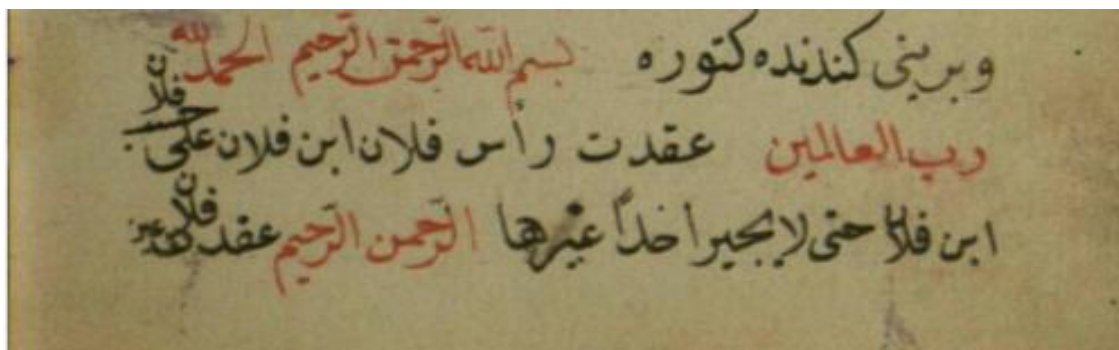 وبريني كندنده كتوره بسم الله الرحمن الرحيم الحمد لله
رب العالمين عقدت رأس فلان ابن فلان على حب فلان
ابن فلان حتى لا يجير اخدًا غيرها الرحمن الرحيم عقد فلان